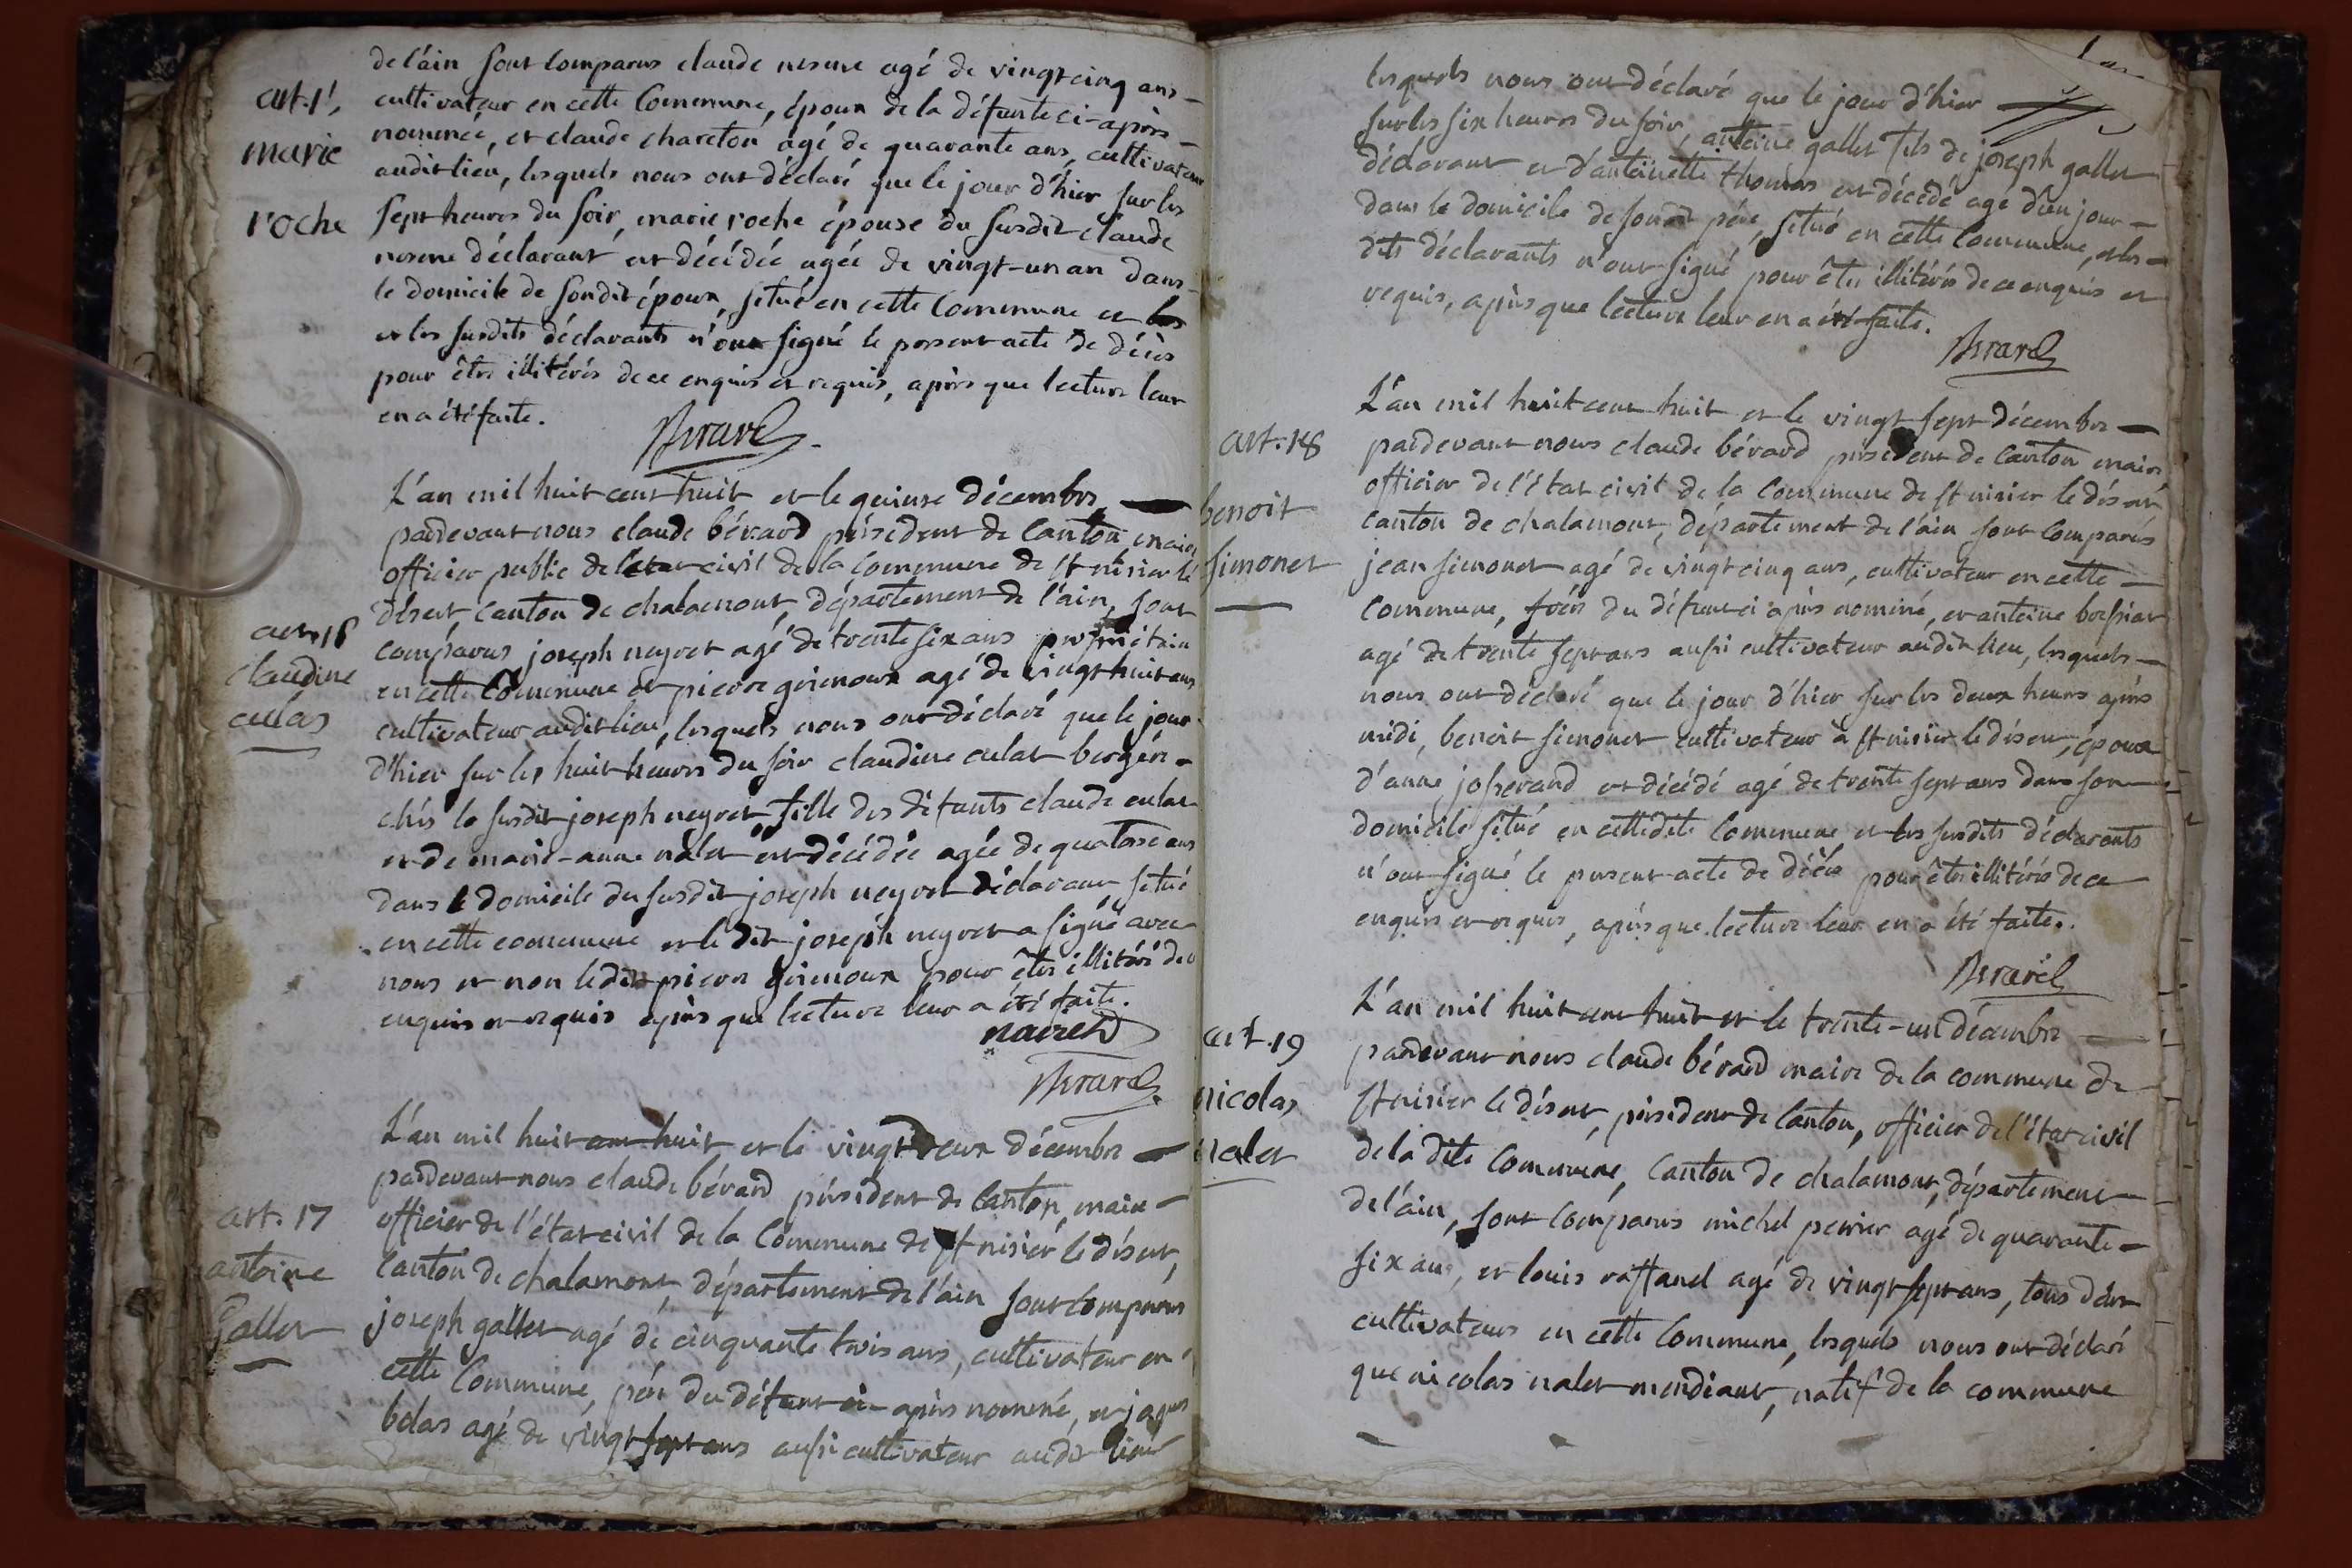 de l'ain sont comparus claude nesme agé de vingt cinq ans —
art. 15
cultivateur en cette commune, époux de la défunte ci-après —
nommée, et claude chareton agé de quarante ans, cultivateur
marie
audit lieu, lesquels nous ont déclaré que le jour d'hier sur les
roche
sept heures du soir, marie roche épouse du susdit claude
nesme déclarant est décédée agée de vingt-un an dans
le domicile de sondit époux, situé en cette commune et
et les susdits déclarants n'ont signé le present acte de décès
pour être illitérés de ce enquis et requis, après que lecture leur
en a été faite.
Berard
L'an mil huit cent huit et le quinze décembre —
pardevant nous claude bérard président de canton maire
officier public de l'état civil de la commune de st nisier le
désert, canton de chalamont, département de l'ain, sont
art. 16
comparus joseph neyret agé de trente six ans propriétaire
claudine
en cette commune et pierre grimoux agé de vingt huit ans
culas
cultivateur audit lieu, lesquels nous ont déclaré que le jour
d'hier sur les huit heures du soir claudine culat bergère —
chés le susdit joseph neyret, fille des défunts claude culat
et de marie-anne nalet est décédée agée de quatorze ans
dans le domicile du susdit joseph neyret déclarant situé
en cette commune et le dit joseph neyret a signé avec
nous et non ledit pierre grimoux pour être illitéré de ce
enquis et requis après que lecture leur a été faite.
neyret
Berard
L'an mil huit cent huit et le vingt deux décembre —
pardevant nous claude bérard président de canton, maire —
art. 17
officier de l'état civil de la commune de st nisier le désert,
antoine
canton de chalamont, département de l'ain sont comparus
Gallet
joseph gallet agé de cinquante trois ans, cultivateur en
cette commune, père du défunt ci-après nommé, et jaques
belas agé de vingt sept ans aussi cultivateur audit lieu
lesquels nous ont déclaré que le jour d'hier
sur les six heures du soir, antoine gallet fils de joseph gallet
déclarant et d'antoinette thomas est décédé agé d'un jour —
dans le domicile de sondit père, situé en cette commune, et les —
dits déclarants n'ont signé pour être illitérés de ce enquis et
requis, après que lecture leur en a été faite.
Berard
L'an mil huit cent huit et le vingt sept décembre —
art. 18
pardevant nous claude bérard président de canton maire
officier de l'état civil de la commune de st nisier le désert
benoit
canton de chalamont, département de l'ain sont comparus
simonet
jean simonet agé de vingt cinq ans, cultivateur en cette —
commune, frère du défunt ci après nommé, et antoine bressiat
agé de trente sept ans aussi cultivateur audit lieu, lesquels —
nous ont déclaré que le jour d'hier sur les deux heures après
midi, benoit simonet cultivateur à st nisier le désert, époux
d'anne josserand est décédé agé de trente sept ans dans son
domicile situé en cettedite commune et les susdits déclarants
n'ont signé le present acte de décès pour être illitérés de ce
enquis et requis, après que lecture leur en a été faite.
Berard
L'an mil huit cent huit et le trente-un décembre —
art. 19
pardevant nous claude bérard maire de la commune de
nicolas
st nisier le désert, président de canton, officier de l'état civil
nalet
de la dite commune, canton de chalamont, département
de l'ain, sont comparus michel perrier agé de quarante —
six ans, et louis raffanel agé de vingt sept ans, tous deux
cultivateurs en cette commune, lesquels nous ont déclaré
que nicolas nalet mendiant, natif de la commune